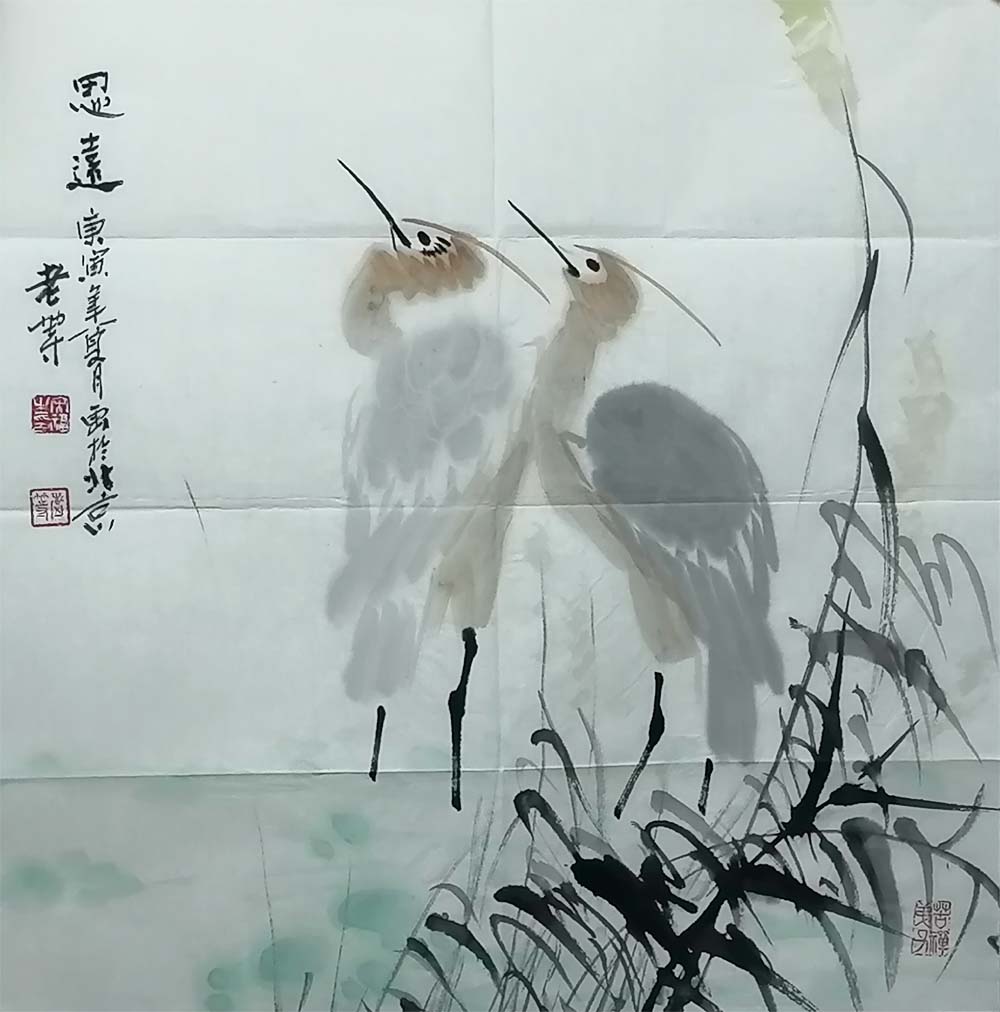 思遠
庚寅年夏月画於北京
老等